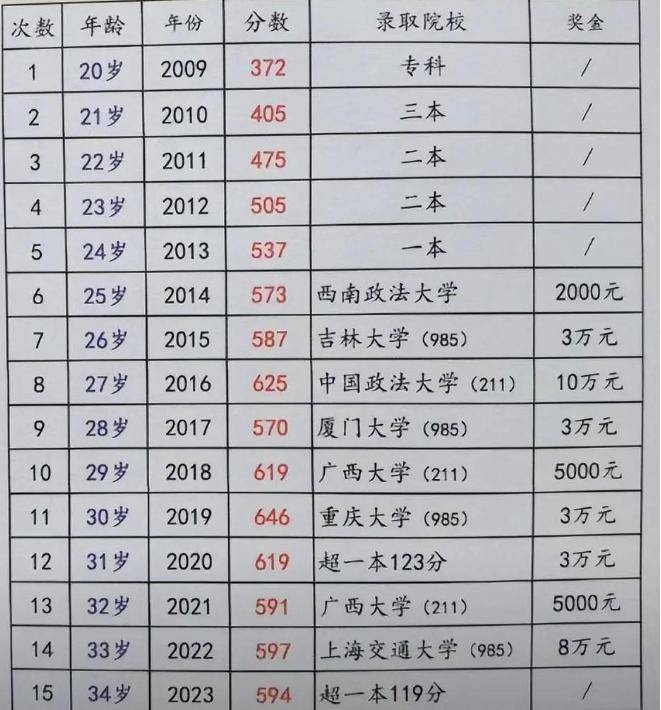 次数 年龄 年份 分数 录取院校 奖金
1 20岁 2009 372 专科 /
2 21岁 2010 405 三本 /
3 22岁 2011 475 二本 /
4 23岁 2012 505 二本 /
5 24岁 2013 537 一本 /
6 25岁 2014 573 西南政法大学 2000元
7 26岁 2015 587 吉林大学（985） 3万元
8 27岁 2016 625 中国政法大学（211） 10万元
9 28岁 2017 570 厦门大学（985） 3万元
10 29岁 2018 619 广西大学（211） 5000元
11 30岁 2019 646 重庆大学（985） 3万元
12 31岁 2020 619 超一本123分 3万元
13 32岁 2021 591 广西大学（211） 5000元
14 33岁 2022 597 上海交通大学（985） 8万元
15 34岁 2023 594 超一本119分 /